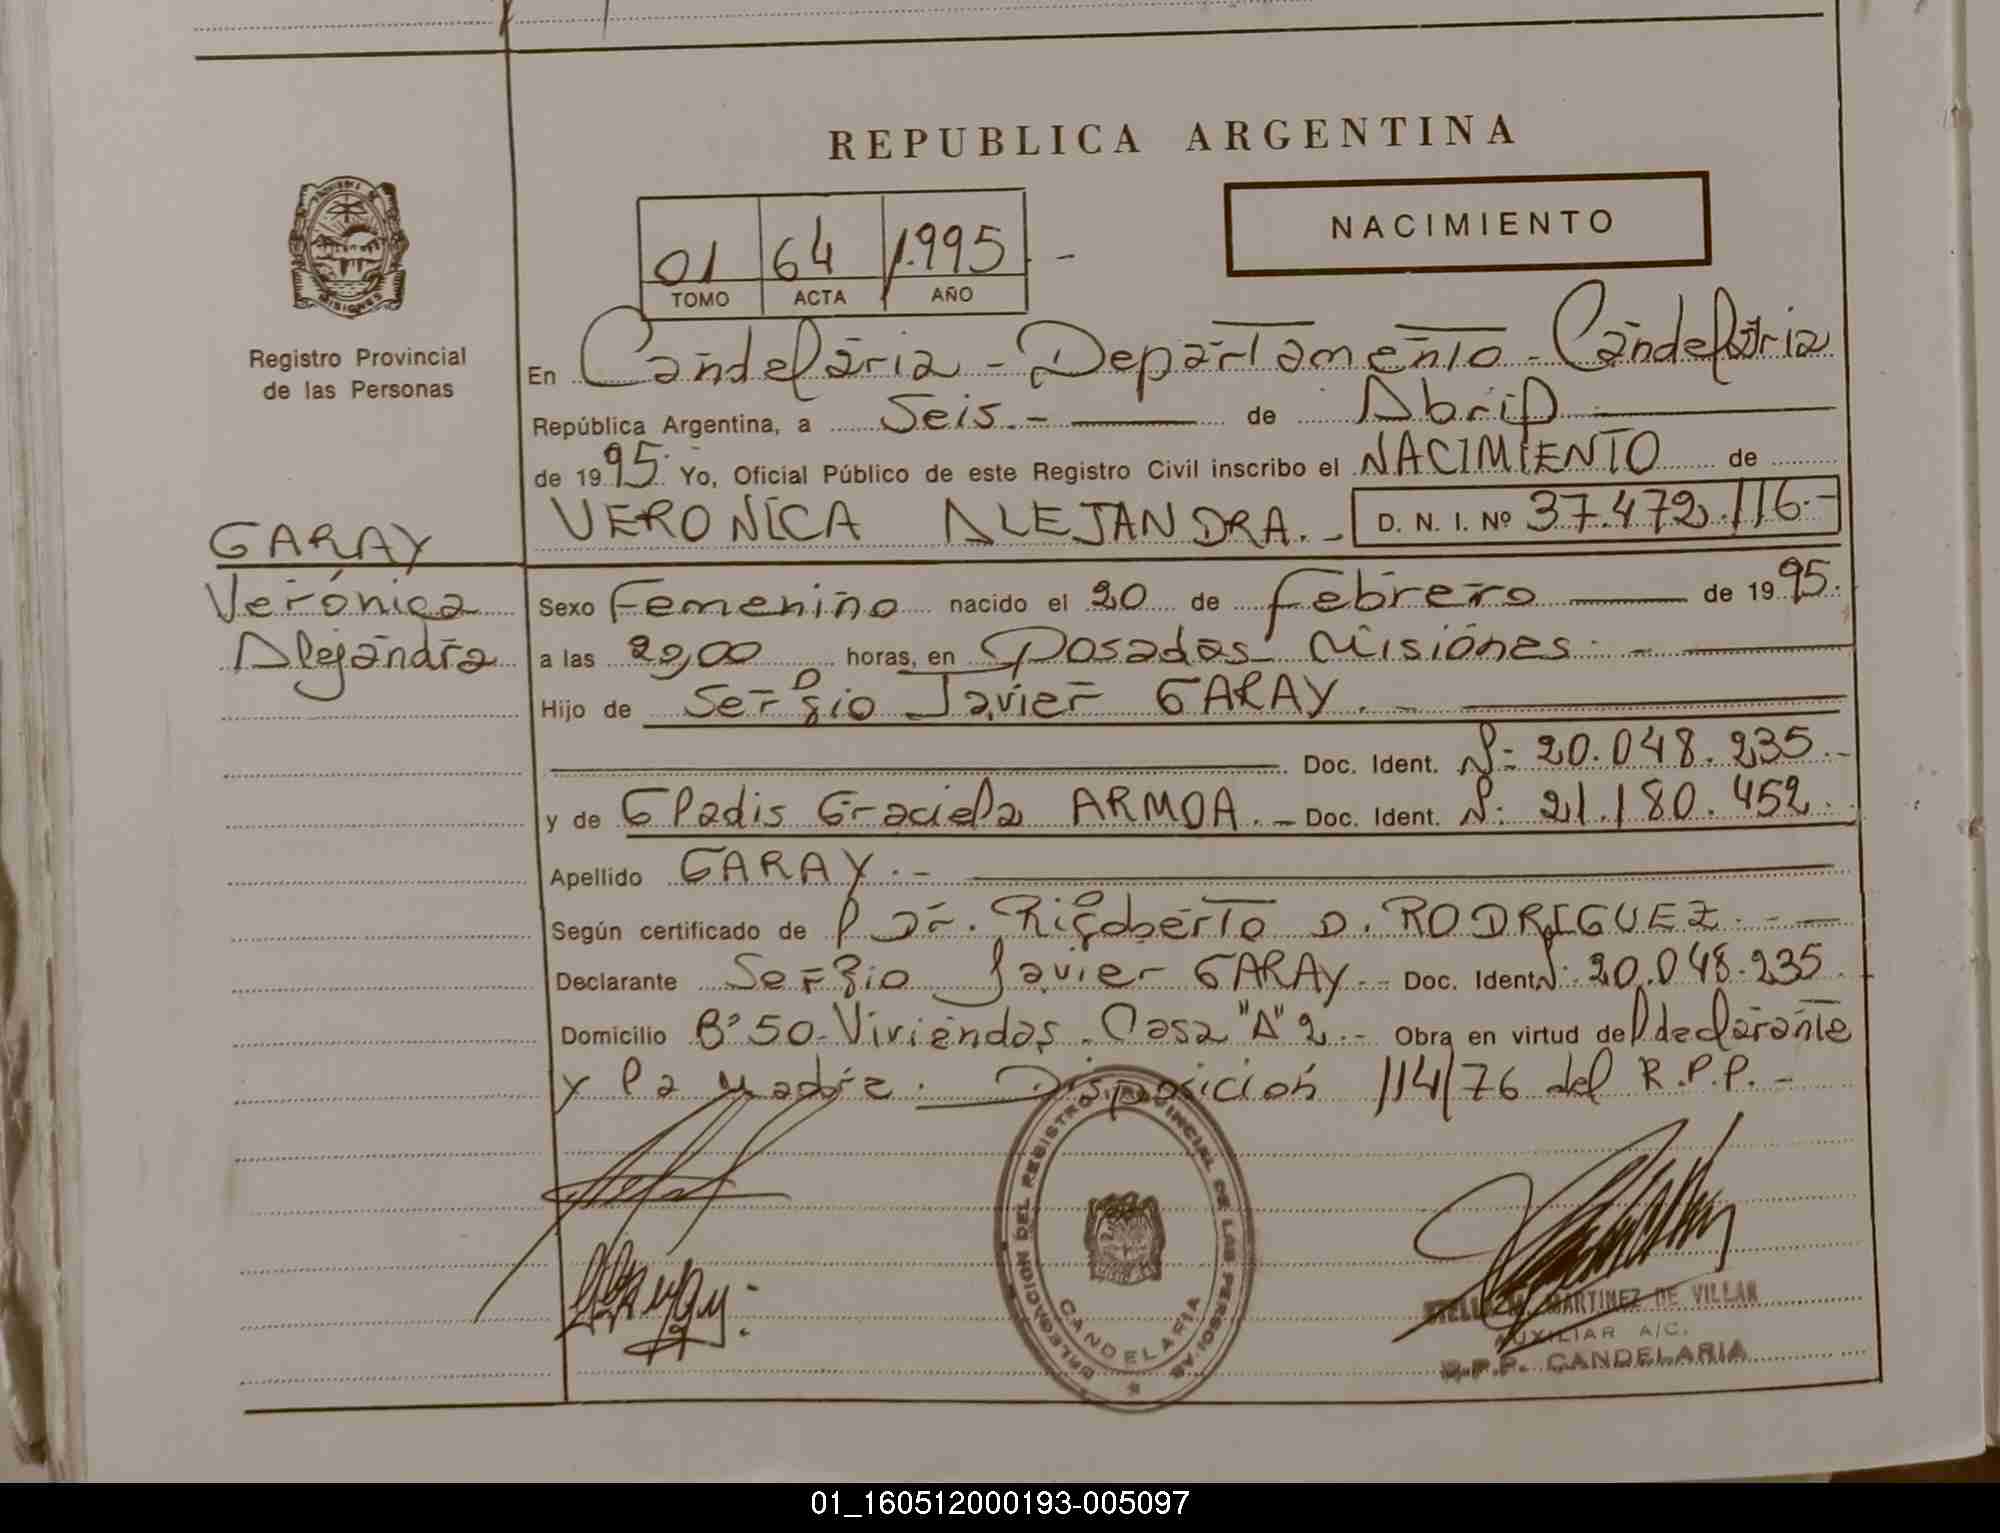 REPUBLICA ARGENTINA
MISIONES
Registro Provincial
de las Personas
01 64 1.995 -
TOMO ACTA AÑO
NACIMIENTO
En Candelaria - Departamento - Candelaria
República Argentina, a Seis.- de Abril
de 1995. Yo, Oficial Público de este Registro Civil inscribo el NACIMIENTO de
VERONICA ALEJANDRA.- D. N. I. Nº 37.472.116.-
GARAY
Verónica
Alejandra
Sexo Femenino nacido el 20 de febrero de 1995.
a las horas, en Posadas Misiones.-
Hijo de Sergio Javier GARAY.-
Doc. Ident. Nº: 20.048.235.-
y de Gladis Graciela ARMOA.- Doc. Ident. Nº: 21.180.452.
Apellido GARAY.-
Según certificado de l Dr. Rigoberto D. RODRIGUEZ.-
Declarante Sergio Javier GARAY.- Doc. Ident Nº: 20.048.235
Domicilio Bº 50 Viviendas. Casa "A" 2.- Obra en virtud del declarante
y la madre. Disposición 114/76 del R.P.P.-
DELEGACION DEL REGISTRO PROVINCIAL DE LAS PERSONAS
CANDELARIA
MARTINEZ DE VILLAN
AUXILIAR A/C.
R.P.P. CANDELARIA
01_160512000193-005097